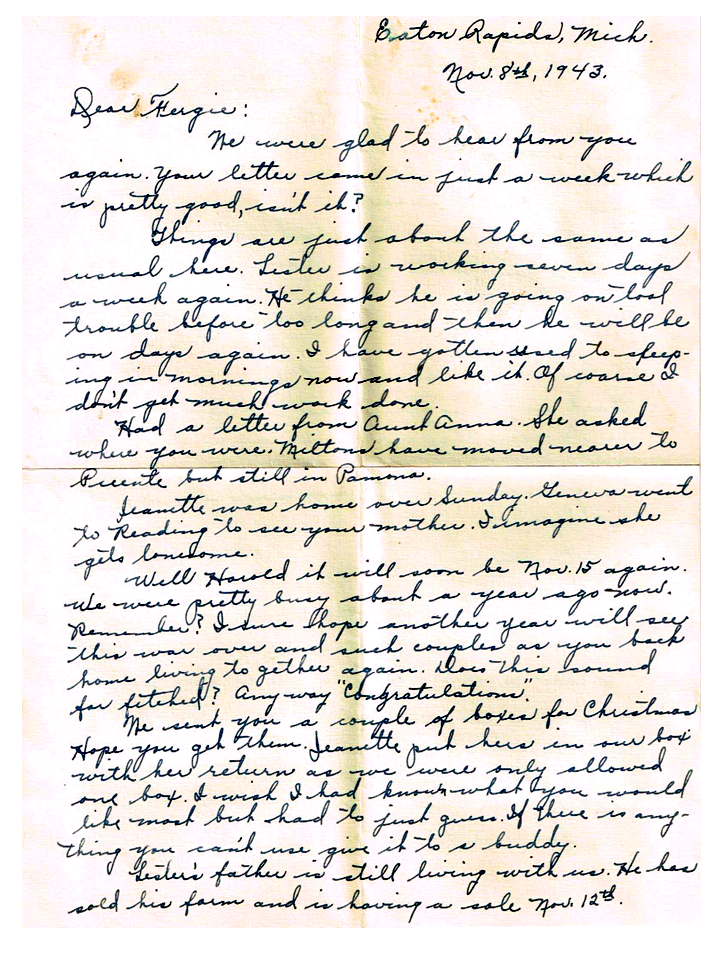 Eaton Rapids, Mich.
Nov. 8th, 1943.
Dear Fergie:
We were glad to hear from you
again. Your letter came in just a week which
is pretty good, isn't it?
Things are just about the same as
usual here. Lister is working seven days
a week again. He thinks he is going on tool
trouble before too long and then he will be
on days again. I have gotten used to sleep-
ing in mornings now and like it. Of coarse I
don't get much work done.
Had a letter from Aunt Anna. She asked
where you were. Miltons have moved nearer to
Puente but still in Pamona.
Jeanette was home over Sunday. Geneva went
to Reading to see your mother. I imagine she
gets lonesome.
Well Harold it will soon be Nov. 15 again.
We were pretty busy about a year ago now.
Remember? I sure hope another year will see
this war over and such couples as you back
home living to gether again. Does this sound
far fitched? Any way "Congratulations".
We sent you a couple of boxes for Christmas
Hope you get them. Jeanette put hers in our box
with her return as we were only allowed
one box. I wish I had known what you would
like most but had to just guess. If there is any-
thing you can't use give it to a buddy.
Lister's father is still living with us. He has
sold his farm and is having a sale Nov. 12th.